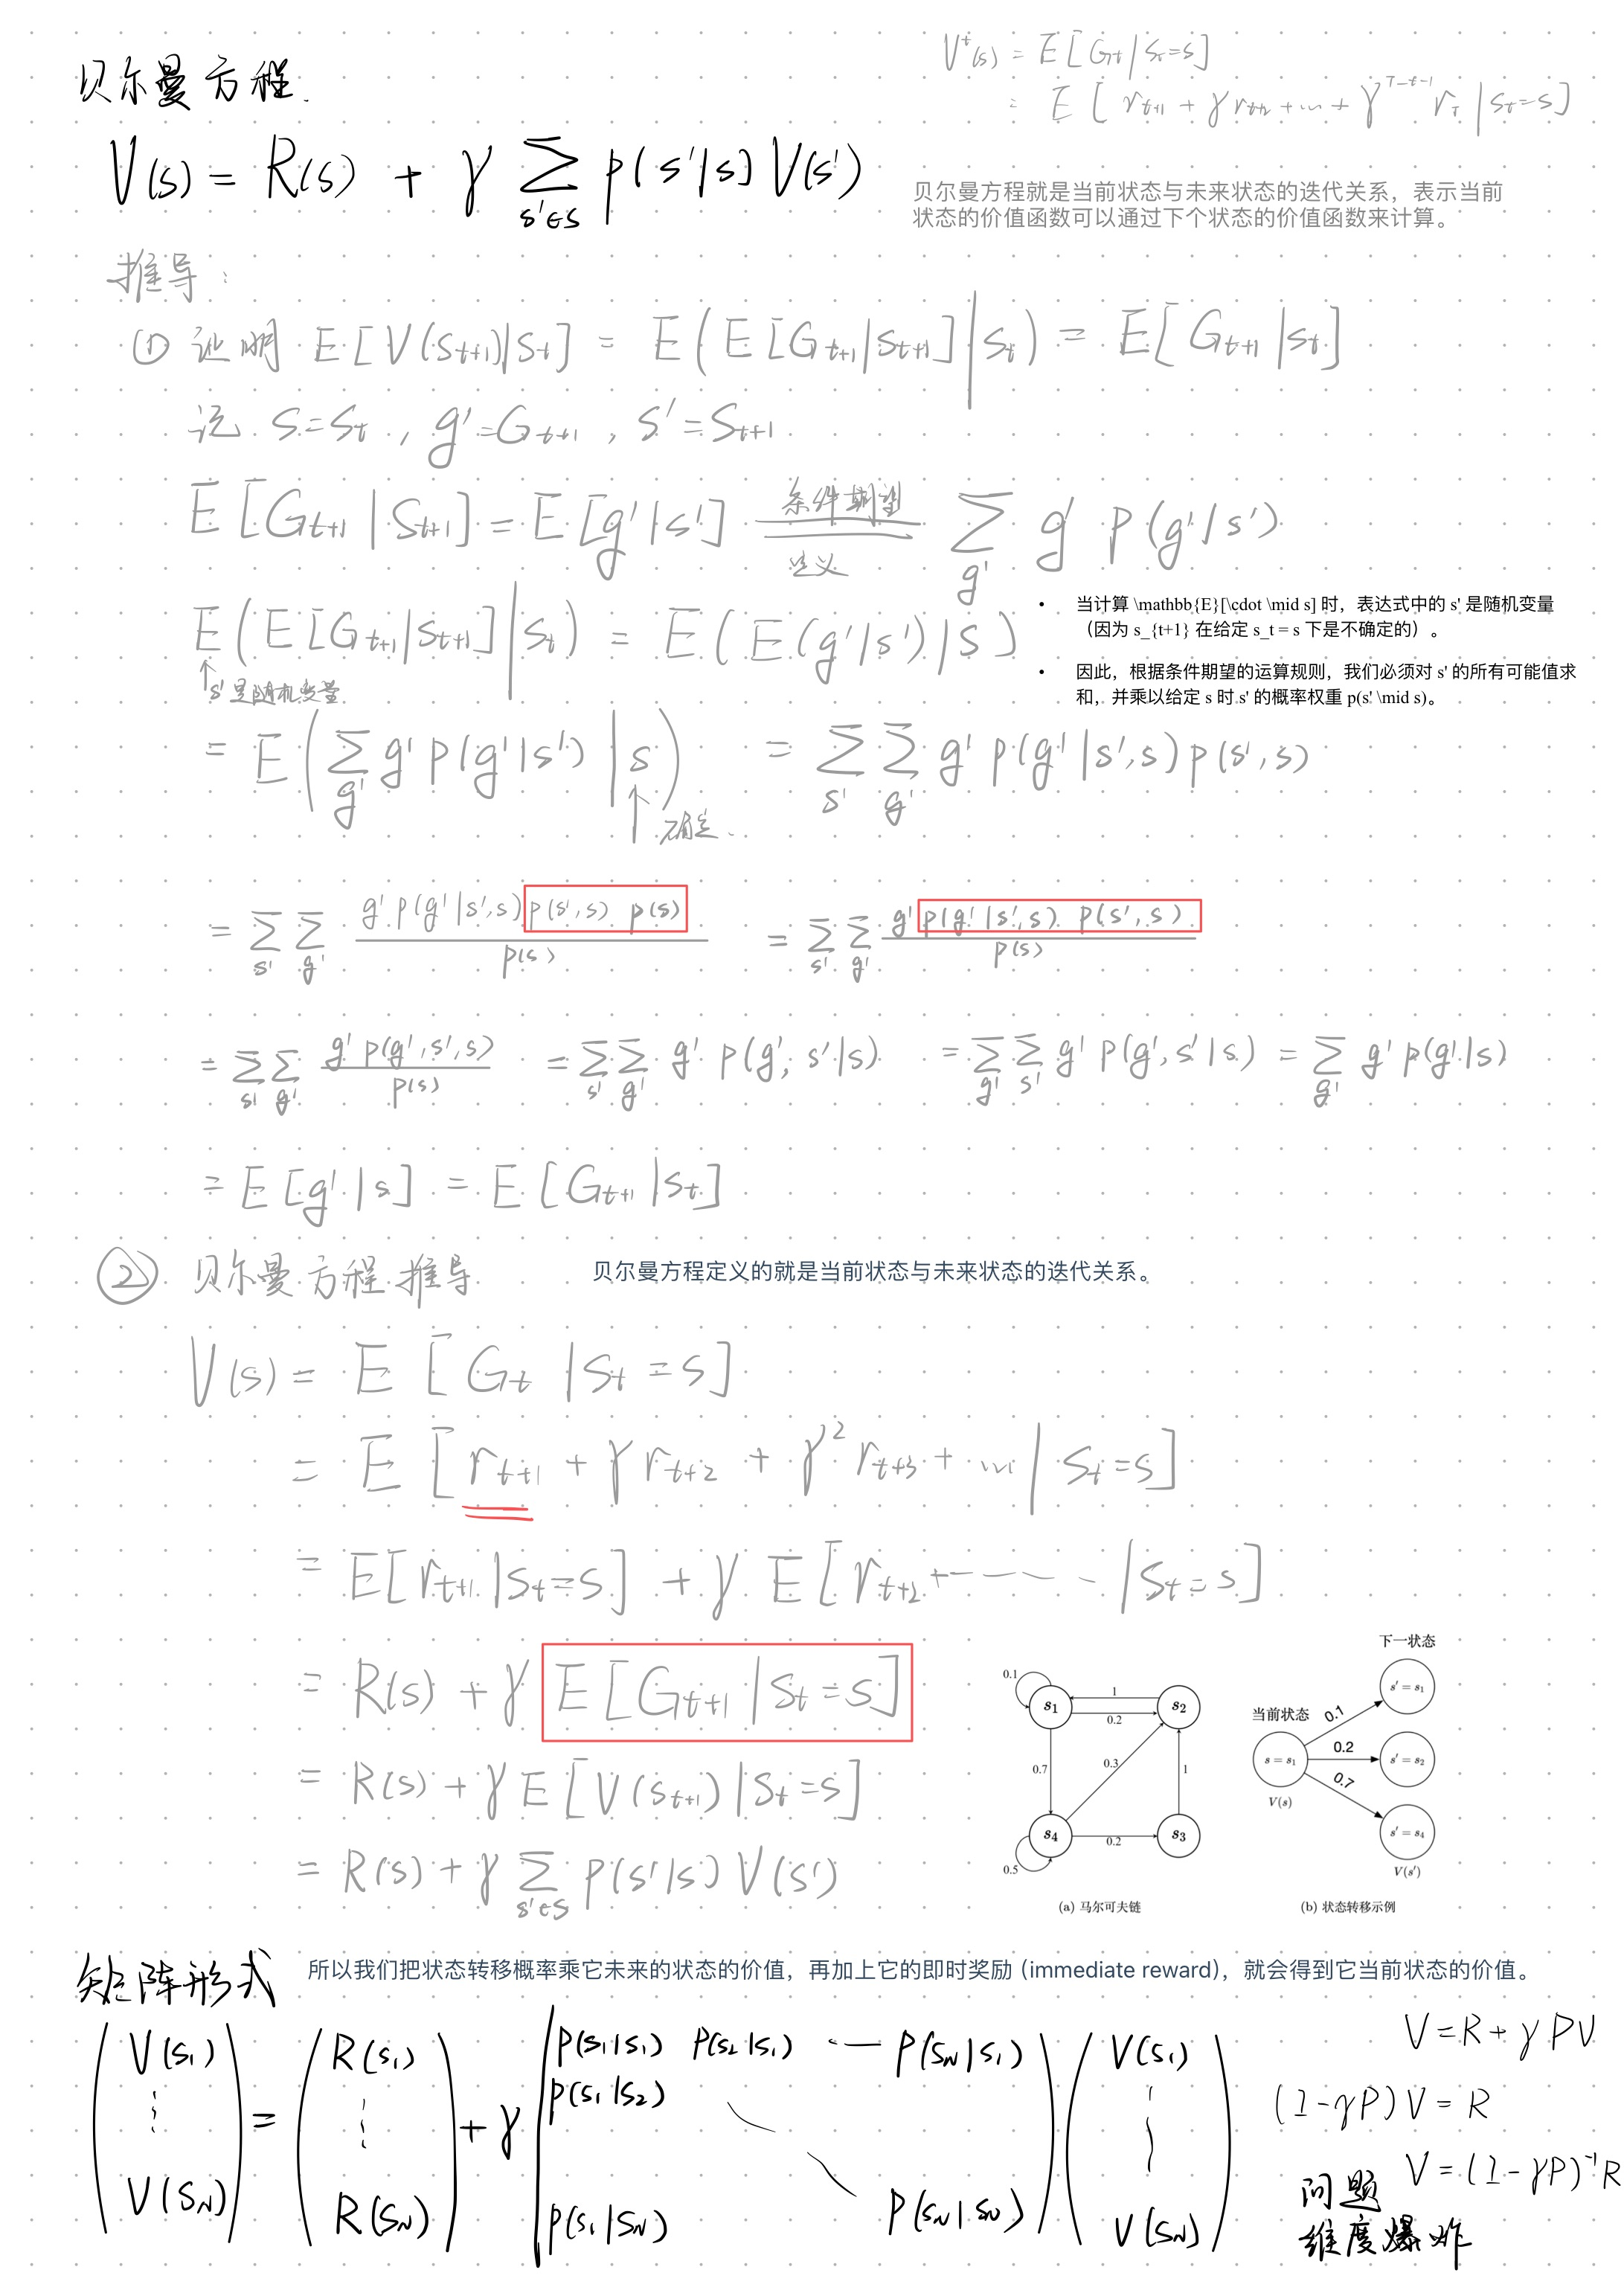 贝尔曼方程.
V^t(s) = E[G_t | s_t=s]
= E[r_{t+1} + γ r_{t+2} + ... + γ^{T-t-1} r_T | s_t=s]
V(s) = R(s) + γ Σ_{s'∈S} p(s'|s) V(s')
贝尔曼方程就是当前状态与未来状态的迭代关系，表示当前
状态的价值函数可以通过下个状态的价值函数来计算。
推导：
① 证明 E[V(s_{t+1})|s_t] = E(E[G_{t+1}|s_{t+1}]|s_t) = E[G_{t+1}|s_t]
记 s=s_t , g'=G_{t+1} , s'=s_{t+1}
E[G_{t+1}|s_{t+1}] = E[g'|s'] 条件期望 定义 Σ_{g'} g' p(g'|s')
E(E[G_{t+1}|s_{t+1}]|s_t) = E(E(g'|s')|s)
↑ s'是随机变量
• 当计算 \mathbb{E}[\cdot \mid s] 时，表达式中的 s' 是随机变量
（因为 s_{t+1} 在给定 s_t = s 下是不确定的）。
• 因此，根据条件期望的运算规则，我们必须对 s' 的所有可能值求
和，并乘以给定 s 时 s' 的概率权重 p(s' \mid s)。
= E(Σ_{g'} g' p(g'|s') | s) = Σ_{s'} Σ_{g'} g' p(g'|s',s) p(s',s)
↑ 确定.
= Σ_{s'} Σ_{g'} g' p(g'|s',s) p(s',s) p(s) / p(s) = Σ_{s'} Σ_{g'} g' p(g'|s',s) p(s',s) / p(s)
= Σ_{s'} Σ_{g'} g' p(g',s',s) / p(s) = Σ_{s'} Σ_{g'} g' p(g',s'|s) = Σ_{g'} Σ_{s'} g' p(g',s'|s) = Σ_{g'} g' p(g'|s)
= E[g'|s] = E[G_{t+1}|s_t]
② 贝尔曼方程推导
贝尔曼方程定义的就是当前状态与未来状态的迭代关系。
V(s) = E[G_t | s_t=s]
= E[r_{t+1} + γ r_{t+2} + γ² r_{t+3} + ... | s_t=s]
= E[r_{t+1}|s_t=s] + γ E[r_{t+2} + ---- | s_t=s]
= R(s) + γ E[G_{t+1} | s_t=s]
= R(s) + γ E[V(s_{t+1}) | s_t=s]
= R(s) + γ Σ_{s'∈S} p(s'|s) V(s')
0.1
s₁
1
0.2
s₂
0.7
0.3
1
s₄
0.2
s₃
0.5
(a) 马尔可夫链
下一状态
当前状态
s = s₁
V(s)
0.1
0.2
0.7
s' = s₁
s' = s₂
s' = s₄
V(s')
(b) 状态转移示例
矩阵形式
所以我们把状态转移概率乘它未来的状态的价值，再加上它的即时奖励 (immediate reward)，就会得到它当前状态的价值。
V(s₁) R(s₁) p(s₁|s₁) p(s₂|s₁) ... p(s_N|s₁) V(s₁)
⋮ = ⋮ + γ p(s₁|s₂) ⋱ ⋮
V(s_N) R(s_N) p(s₁|s_N) p(s_N|s_N) V(s_N)
V = R + γPV
(I-γP)V = R
V = (I-γP)⁻¹R
问题
维度爆炸